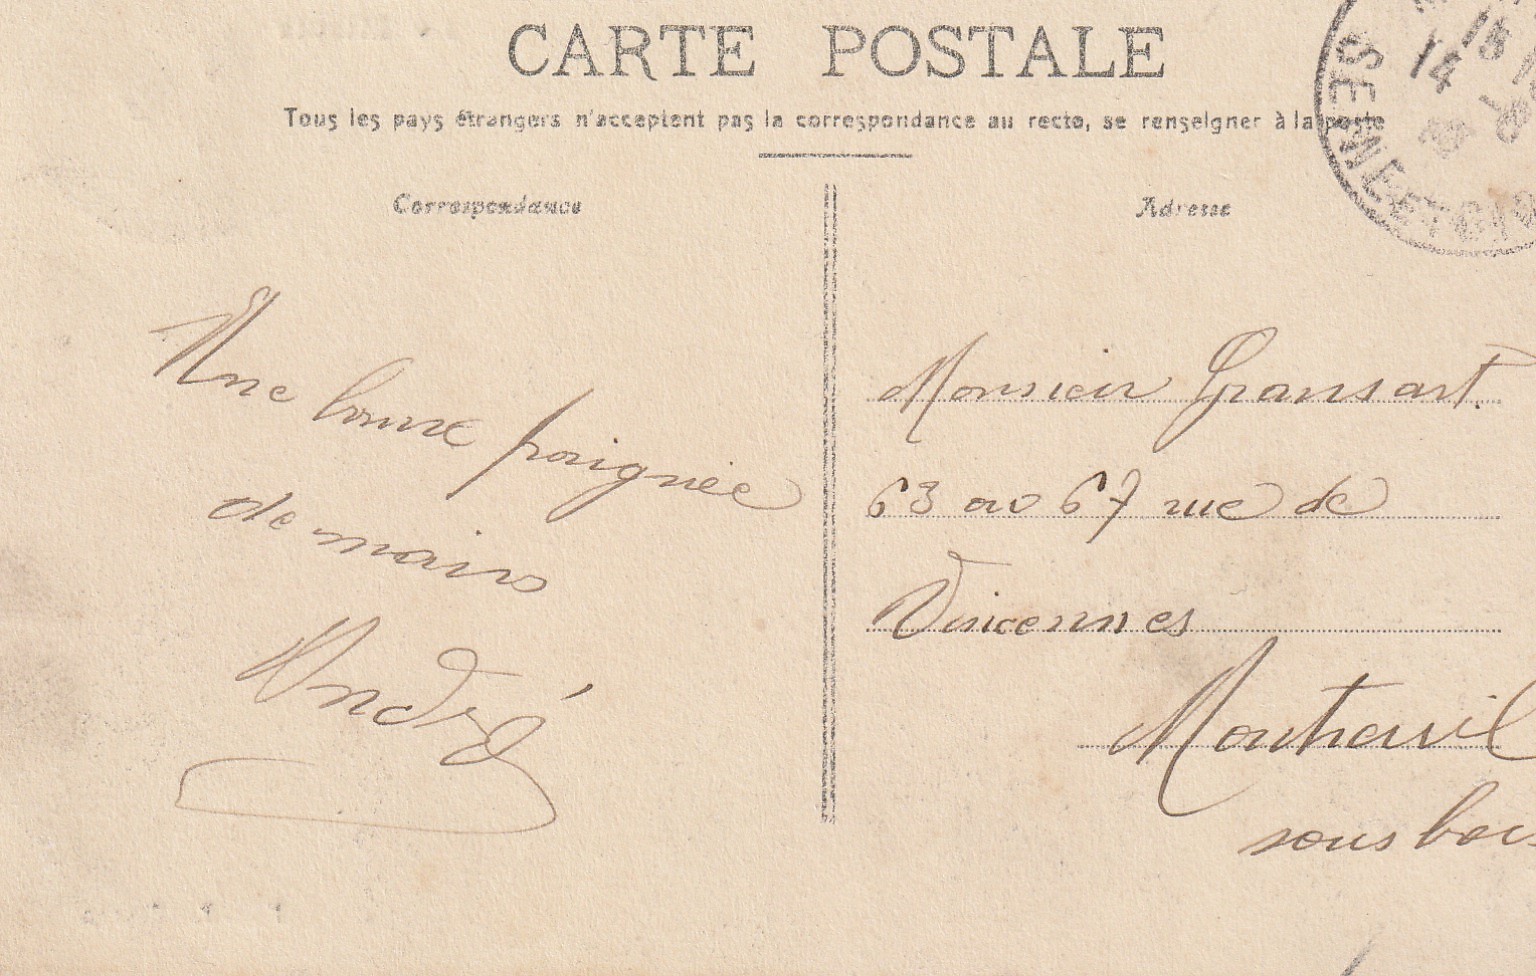 CARTE POSTALE
Tous les pays étrangers n'acceptent pas la correspondance au recto, se renseigner à la poste
Correspondance
Une bonne poignée
de mains
André
Adresse
Monsieur Gransart.
63 ou 67 rue de
Vincennes
Montreuil
sous bois
15
14
SEINE ET OIS